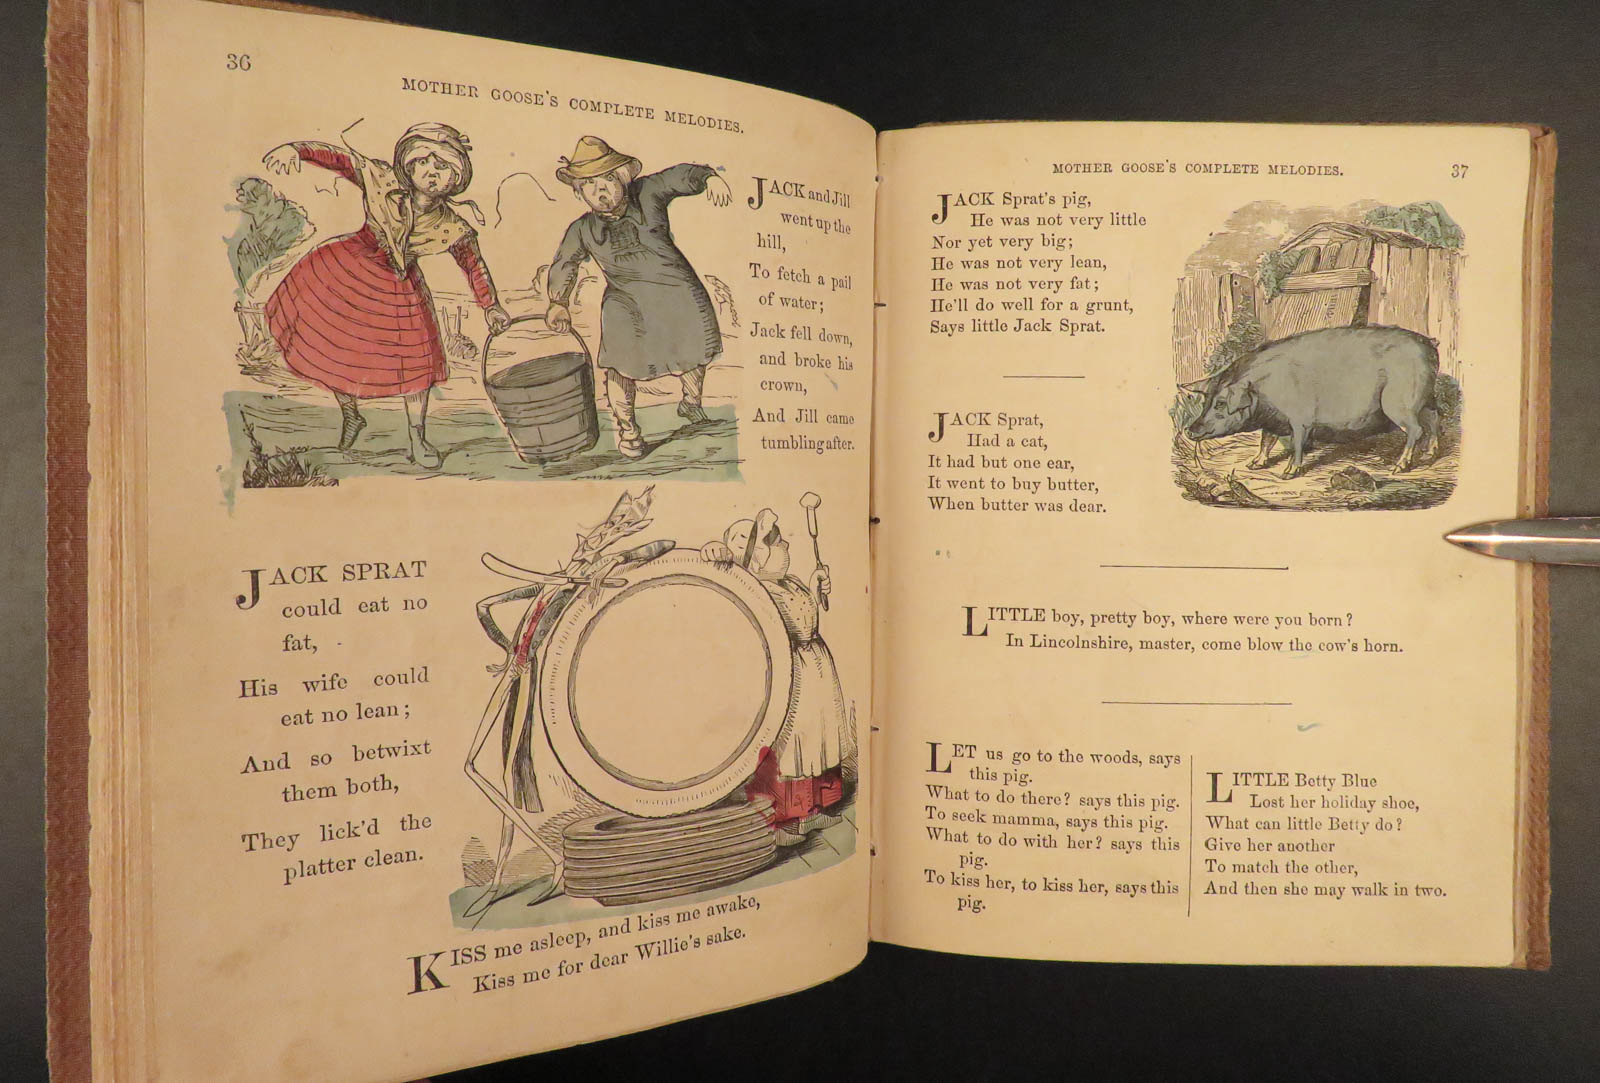 36
MOTHER GOOSE'S COMPLETE MELODIES.
JACK and Jill
went up the
hill,
To fetch a pail
of water;
Jack fell down,
and broke his
crown,
And Jill came
tumbling after.
JACK SPRAT
could eat no
fat,
His wife could
eat no lean;
And so betwixt
them both,
They lick'd the
platter clean.
KISS me asleep, and kiss me awake,
Kiss me for dear Willie's sake.
MOTHER GOOSE'S COMPLETE MELODIES.
37
JACK Sprat's pig,
He was not very little
Nor yet very big;
He was not very lean,
He was not very fat;
He'll do well for a grunt,
Says little Jack Sprat.
JACK Sprat,
Had a cat,
It had but one ear,
It went to buy butter,
When butter was dear.
LITTLE boy, pretty boy, where were you born?
In Lincolnshire, master, come blow the cow's horn.
LET us go to the woods, says
this pig.
What to do there? says this pig.
To seek mamma, says this pig.
What to do with her? says this
pig.
To kiss her, to kiss her, says this
pig.
LITTLE Betty Blue
Lost her holiday shoe,
What can little Betty do?
Give her another
To match the other,
And then she may walk in two.